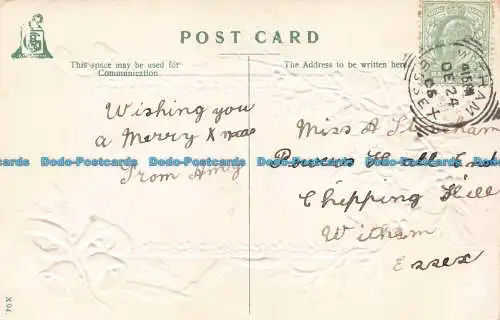 POST CARD
This space may be used for
Communication.
The Address to be written here
Wishing you
a Merry Xmas
From Amy
Miss A
Powers Hall End
Chipping Hill
Witham
Essex
WITHAM
4 15 PM
DE 24
05
ESSEX
X 94.
Dodo-Postcards Dodo-Postcards Dodo-Postcards Dodo-Postcards Dodo-Postcards